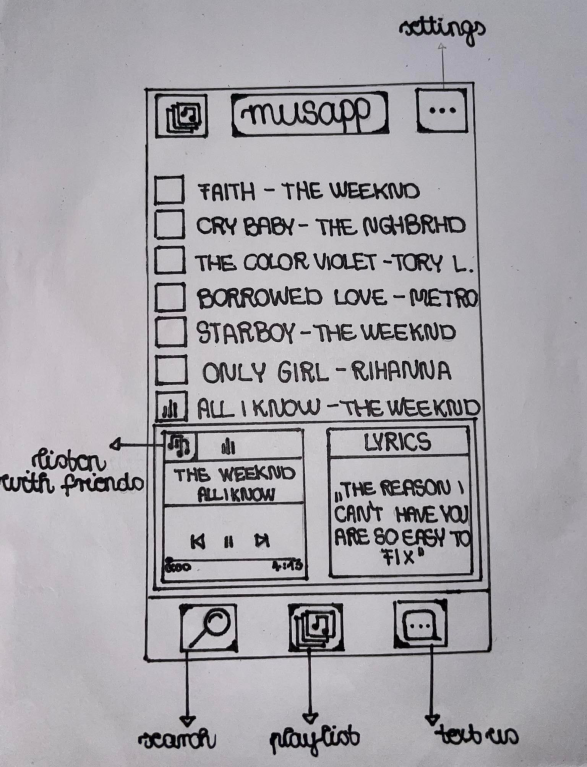 settings
musapp
FAITH - THE WEEKND
CRY BABY - THE NGHBRHD
THE COLOR VIOLET - TORY L.
BORROWED LOVE - METRO
STARBOY - THE WEEKND
ONLY GIRL - RIHANNA
ALL I KNOW - THE WEEKND
listen
with friends
THE WEEKND
ALL I KNOW
4:13
LYRICS
„THE REASON I
CAN'T HAVE YOU
ARE SO EASY TO
FIX"
search
playlist
text us